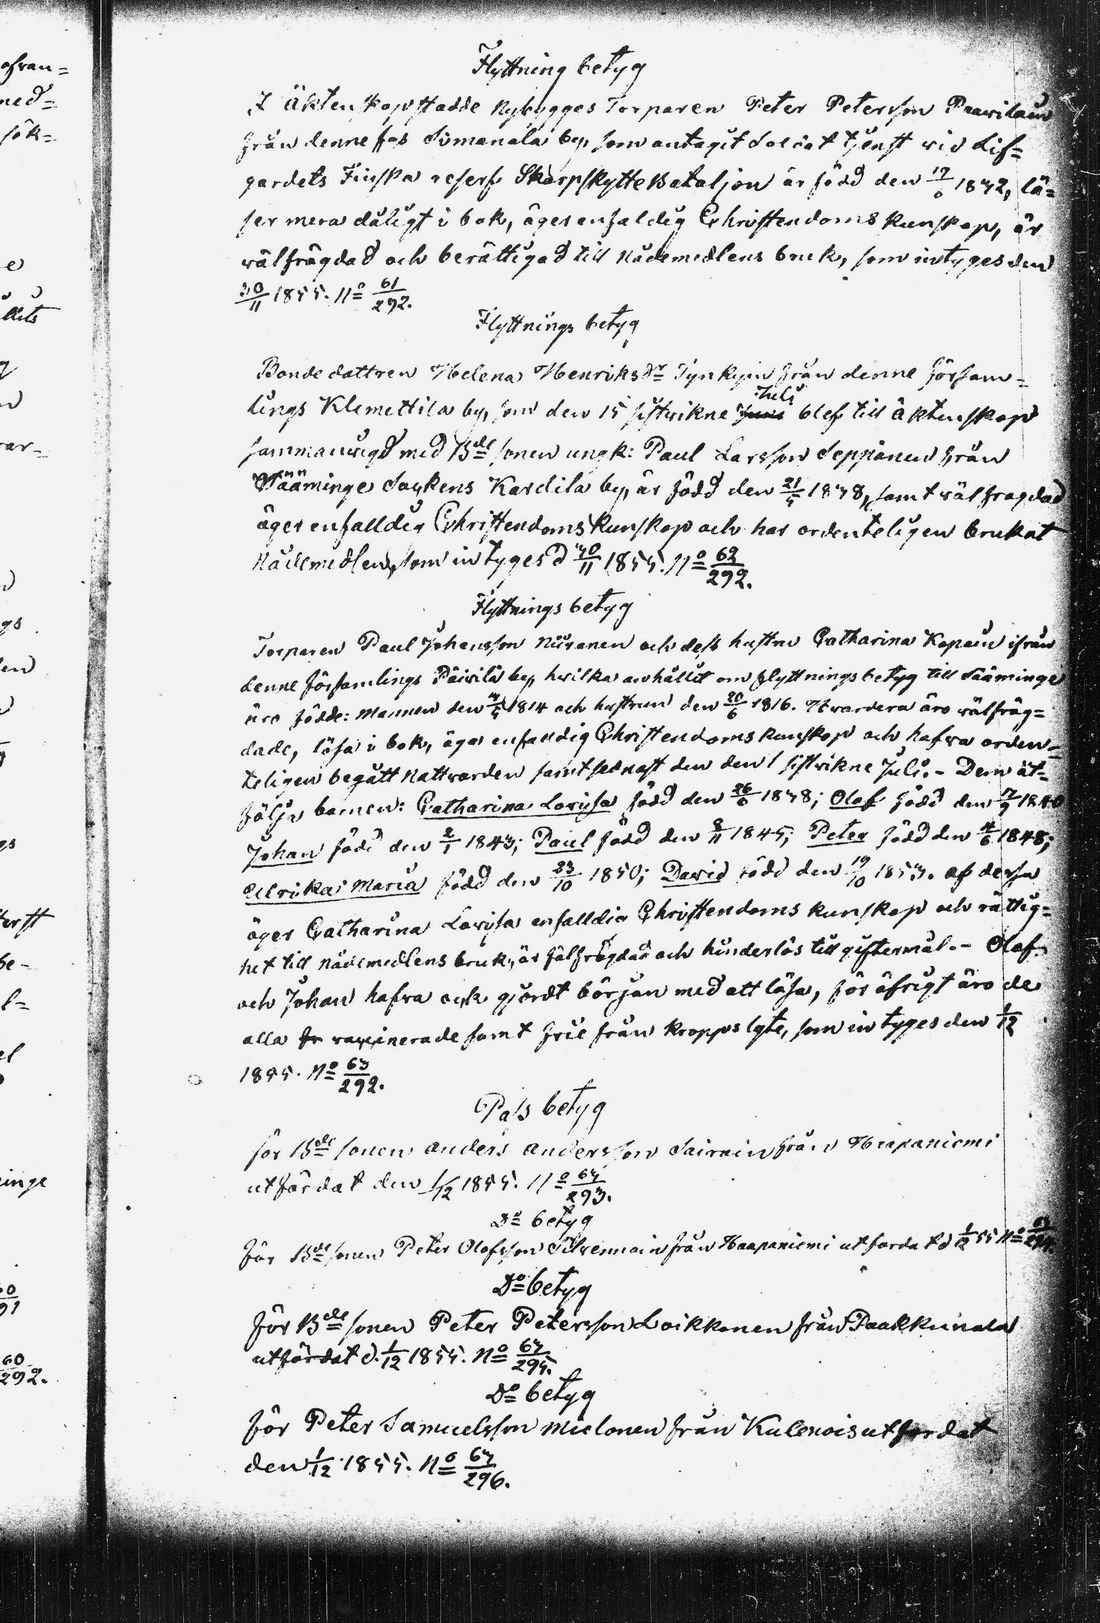 Flyttning betyg
I äkten kapstadde Nybygges Torparen Peter Petersson Paawilain
från denne förs Simanala by, som antagit Soldat tjenst wid Lif-
gardets Finska reserf Skarpskytte Bataljon är född den 17/6 1832, lä-
ser mera dåligt i bok, äger enfaldig Christendoms kunskap, är
wälfrägdad och berättigad till Nådemedlens bruk, som intyges den
30/11 1855. No 61/292.
Flyttnings betyg
Bonde dattren Helena Henriksdr Tynkyin från denne försam-
lings Klemettila by, som den 15 sistvikne Juli blef till äktenskap
sammanvigd med Bde sonen ungk: Paul Larsson Seppänen från
Sääminge Sockens Kardila by, är född den 21/5 1838, samt wälfrägdad
äger enfalldig Christendoms kunskap och har ordenteligen brukat
Nådemedlen, som intyges d 30/11 1855. No 62/292.
Flyttnings betyg
Torparen Paul Johansson och dess hustru Catharina Kopain ifrån
denne församlings by, hvilka anhållit om flyttningsbetyg till Sääminge
äro födde: Mannen den 1814 och hustrun den 20/6 1816. Hvardera äro wälfräg-
dade, läsa i bok, äga enfaldig Christendoms kunskap och hafva orden-
teligen begått Nattvarden samt sednast den 1 sistvikne Juli. - Dem åt-
följa barnen: Catharina Lovisa född den 26/6 1838; Olof född den 1840
Johan född den 2/1 1843; Paul född den 8/11 1845; Peter född den 4/6 1848;
Ulrika Maria född den 23/10 1850; Dawid född den 19/10 1853. af dessa
äger Catharina Lovisa enfalldig Christendoms kunskap och rättig-
het till Nådemedlens bruk, är fälfrägdad och hinderlös till giftermål. - Olof
och Johan hafva ock gjordt början med att läsa, för öfrigt äro de
alla vaxinerade samt frie från kropps lyte, som intyges den 1/12
1855. No 63/292.
Pass betyg
för Bde sonen Anders Andersson Sairain från Haapaniemi
utfärdat den 1/12 1855. No 64/293.
Do betyg
för Bde sonen Peter Olofsson från Haapaniemi utfärdat d 1/12 55 No
Do betyg
för Bde sonen Peter Petersson Loikkanen från Paakkunala
utfärdat d. 1/12 1855. No 64/295.
Do betyg
för Peter Samuelsson Mielonen från Kulenois utfärdat
den 1/12 1855. No 64/296.